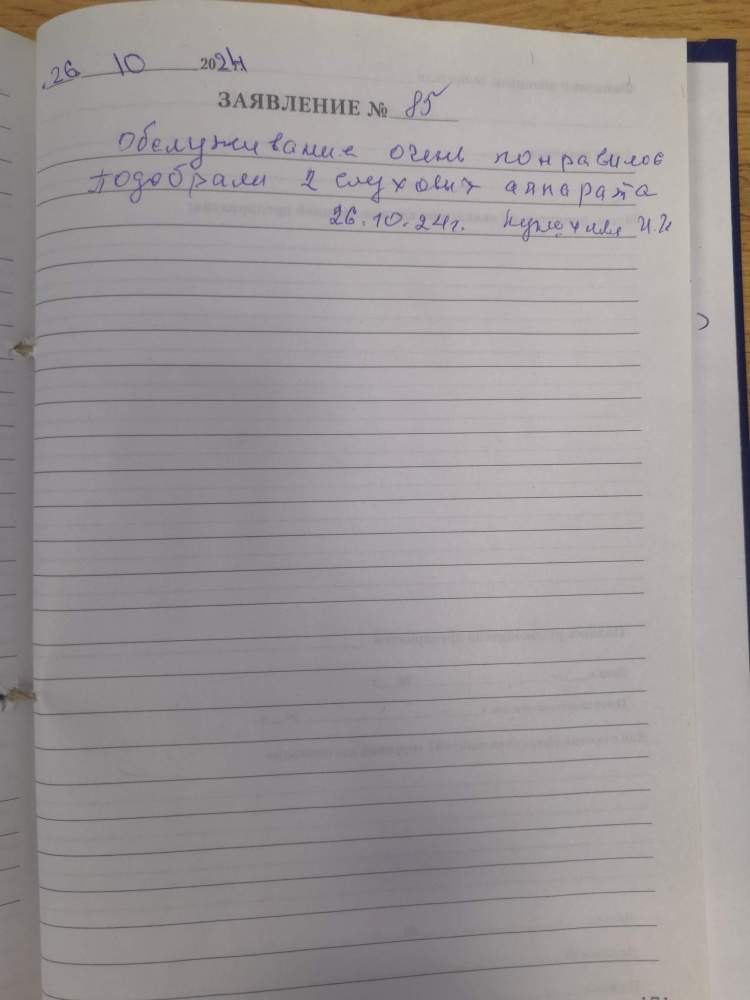 26 10 2024
ЗАЯВЛЕНИЕ № 85
Обслуживание очень понравилос
Подобрали 2 слухових аппарата
26.10.24г. И.И